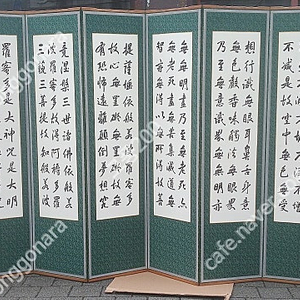 不減是故空中無色無受
想行識無眼耳鼻舌身意
無色聲香味觸法無眼界
乃至無意識界無無明亦
無無明盡乃至無老死亦
無老死盡無苦集滅道無
智亦無得以無所得故菩
提薩埵依般若波羅蜜多
故心無罣礙無罣礙故無
有恐怖遠離顛倒夢想究
竟涅槃三世諸佛依般若
波羅蜜多故得阿耨多羅
三藐三菩提故知般若波
羅蜜多是大神咒是大明
onggonara
cafe.naver